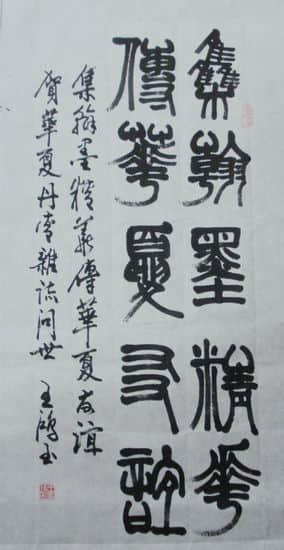 集翰墨精華
傳華夏友誼
集翰墨精華傳華夏友誼
賀華夏丹青雜誌問世 王鴻玉